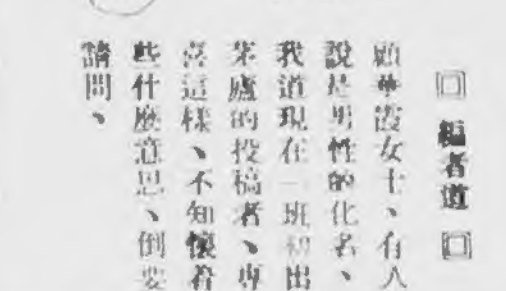 回 編者道 回
顧華霞女士、有人
說是男性的化名、
我道現在一班初出
茅廬的投稿者、專
喜這樣、不知懷着
些什麼意思、倒要
請問、